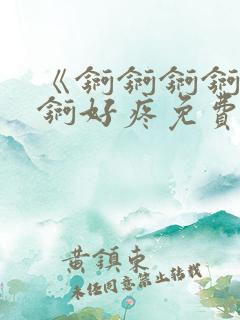 《锕锕锕锕
锕好疼免費
黄鎮東
未任同意禁止转载